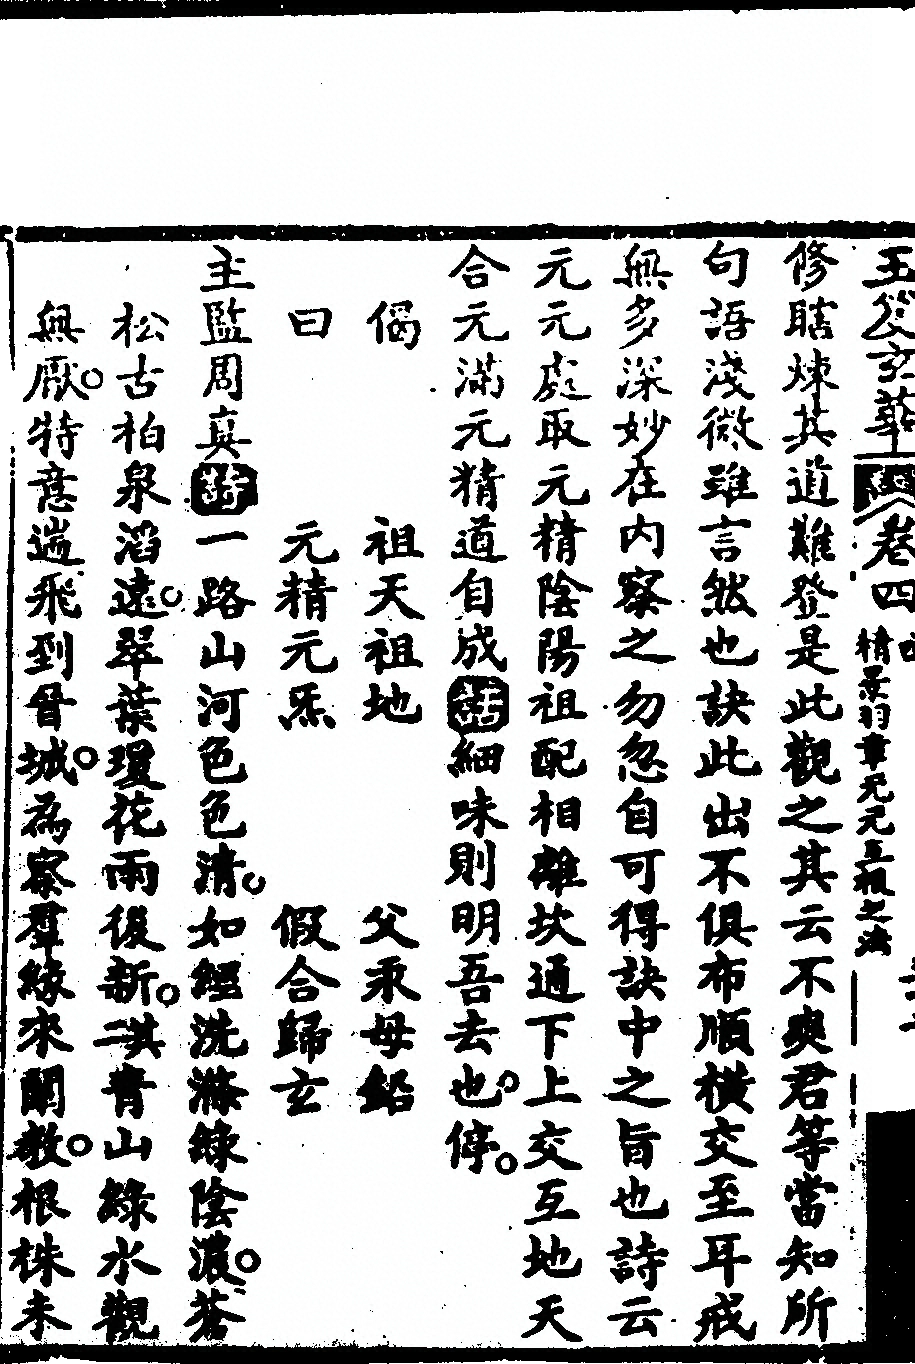 玉笈玄華 經 卷四 精炁羽章元元互根之法
修瞎煉其道難登是此觀之其云不爽君等當知所
句語淺微雖言然也訣此出不俱布順橫交至耳戒
無多深妙在內察之勿忽自可得訣中之旨也詩云
元元處取元精陰陽祖配相離坎通下上交互地天
合元滿元精道自成細味則明吾去也停
偈 祖天祖地 父汞母鉛
曰 元精元炁 假合歸玄
主監周真一路山河色色清如經洗滌綠陰濃蒼
松古柏泉滔遠翠葉瓊花雨後新二淇青山綠水觀
無厭特意遄飛到晉城為察羣緣來闡教根株未